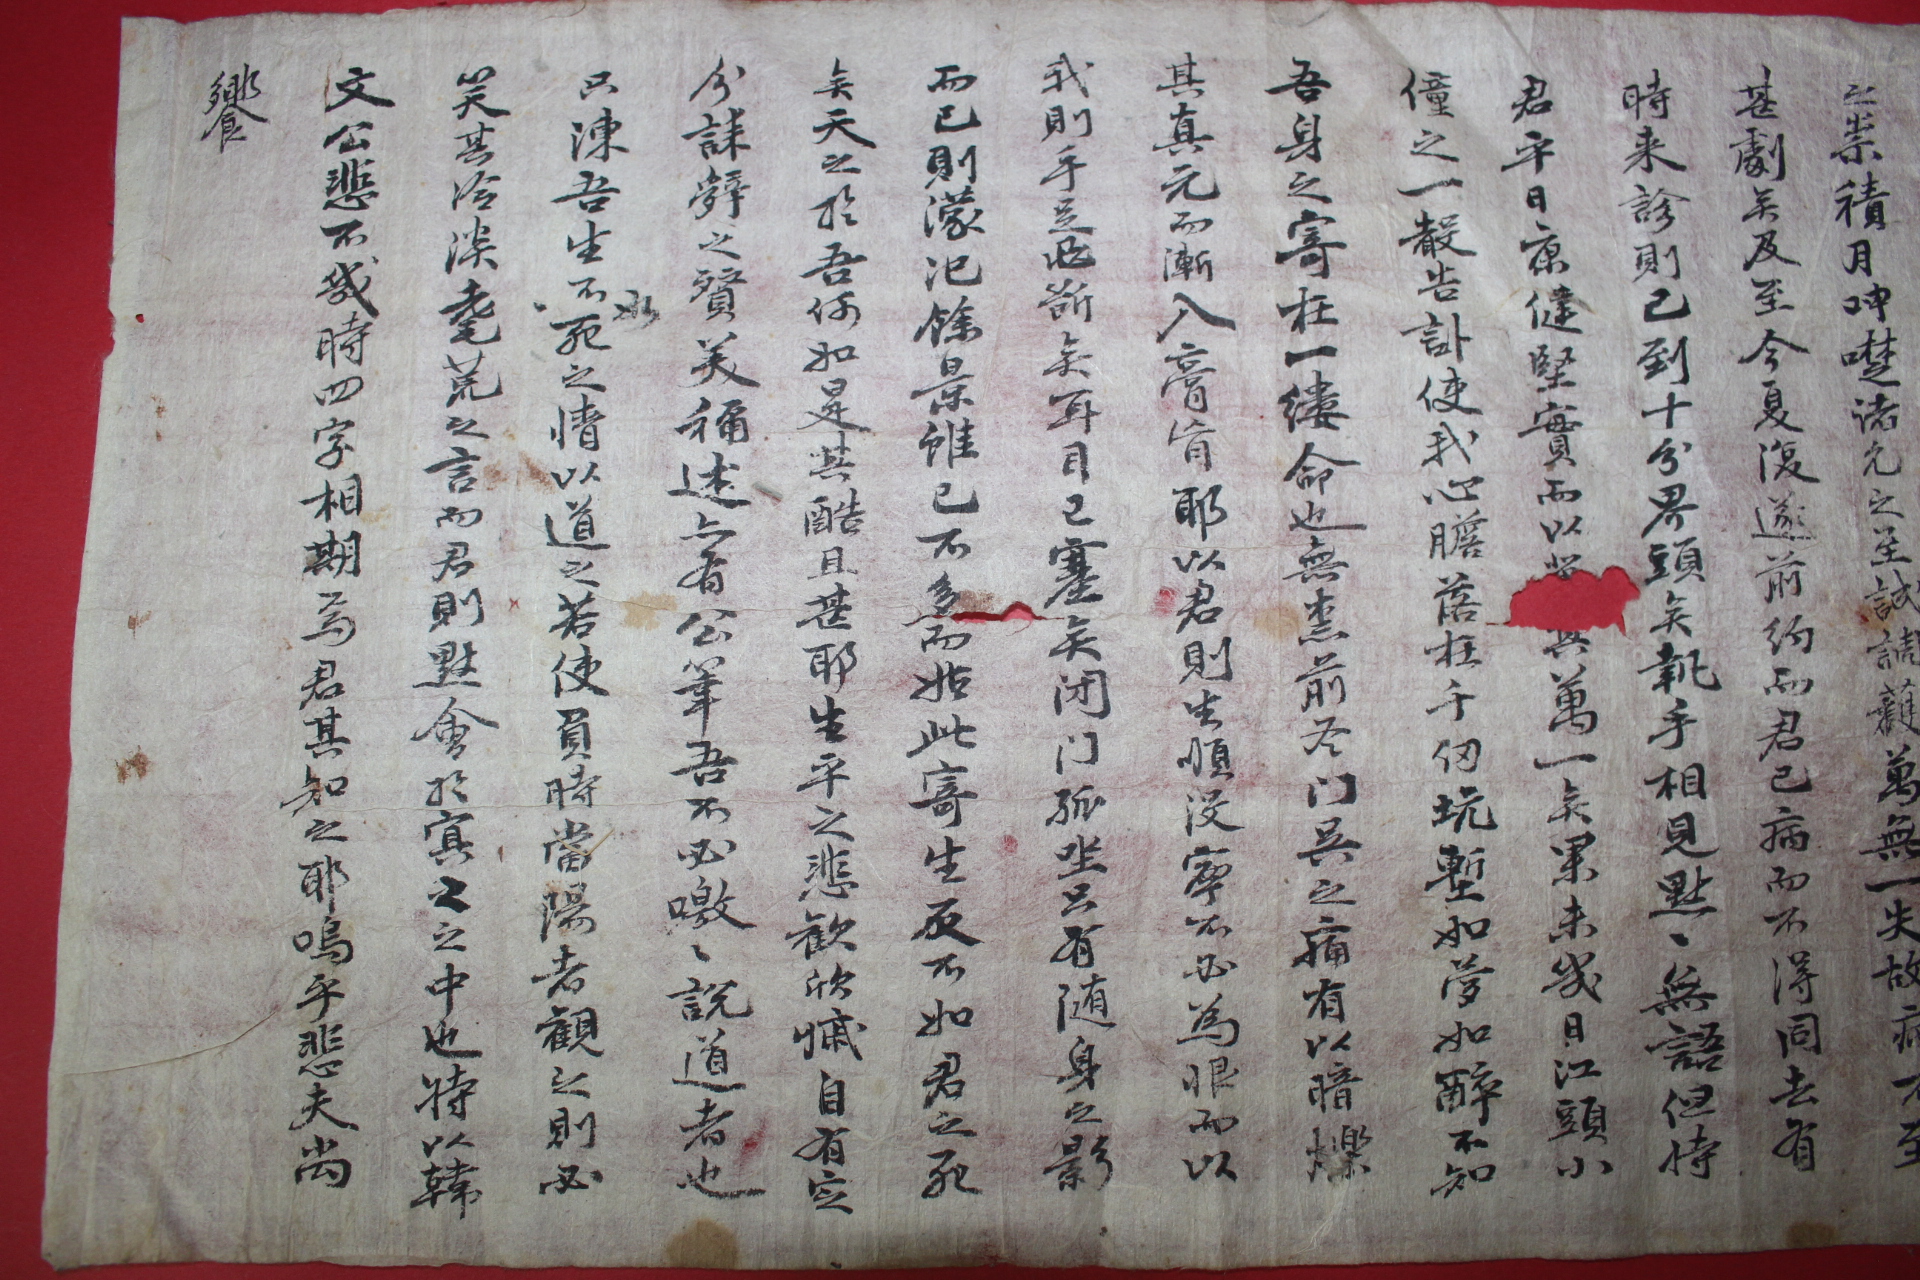 之祟積月呻囈諸兄之至誠調護萬無一失故病不至
甚劇矣及至今夏復遂前約而君已病而不得同去有
時来診則已到十分界頭矣執手相見黙〻無語但恃
君平日康健堅實而以 其萬一矣果未幾日江頭小
僮之一聲告訃使我心膽落在千仞坑塹如夢如醉不知
吾身之寄在一縷命也無柰前冬门吳之痛有以暗爍
其真元而漸入膏肓耶以君則生順没寧不必為恨而以
我則手足 斷矣耳目已塞矣闭门孤坐只有随身之影
而已則濛汜餘景雖已不多而如此寄生反不如君之死
矣天之於吾何如是其酷且甚耶生平之悲歡欣慽自有定
分誄辭之賢美稱述亦有公筆吾不必噭〻說道者也
只陳吾生不死之情以道之若使員時當陽者觀之則必
笑其冷淡耄荒之言而君則黙會於冥〻之中也特以韓
文公悲不幾時四字相期焉君其知之耶嗚乎悲夫尚
饗